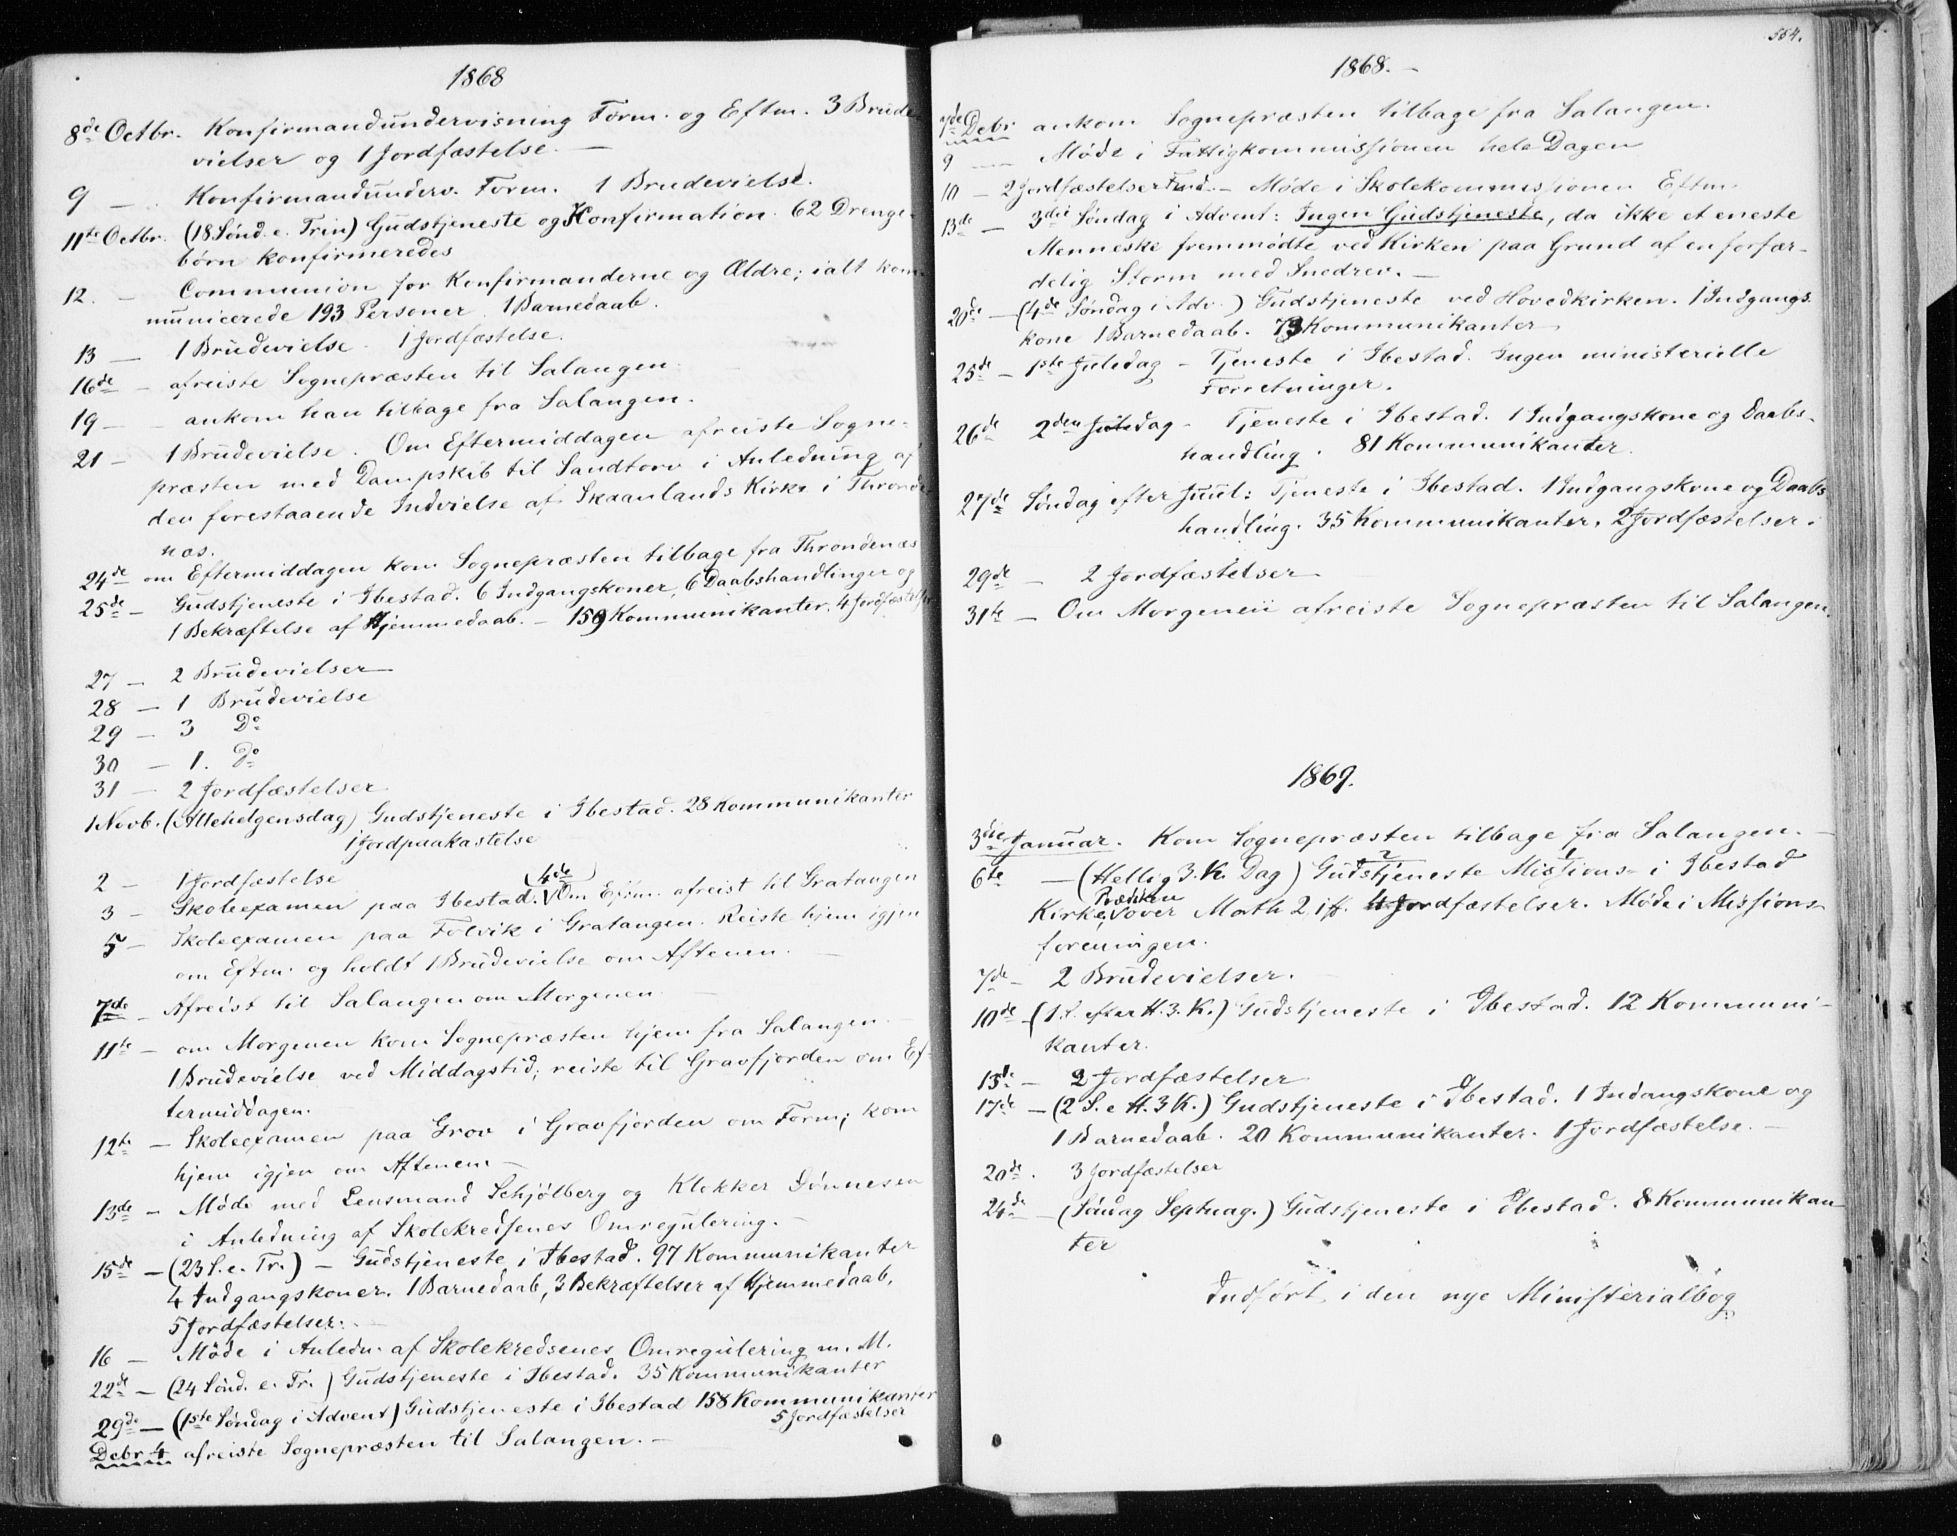 1868
8de Octbr. Konfirmandundervisning Form. og Eftm. 3 Brude
vielser og 1 Jordfæstelse. —
9 — Konfirmandunderv. Form. 1 Brudevielse.
11te Octbr. (18 Sønd. e. Trin) Gudstjeneste og Konfirmation. 62 Drenge-
børn konfirmeredes
12. — Communion for Konfirmanderne og Ældre; ialt kom-
municerede 193 Personer. 1 Barnedaab.
13 — 1 Brudevielse. 1 Jordfæstelse.
16de — afreiste Sognepræsten til Salangen.
19 — ankom han tilbage fra Salangen.
21 — 1 Brudevielse. Om Eftermiddagen afreiste Sogne-
præsten med Dampskib til Sandtorv i Anledning af
den forestaaende Indvielse af Skaanlands Kirke i Thronde
næs.
24de om Eftermiddagen kom Sognepræsten tilbage fra Throndenæs
25de — Gudstjeneste i Ibestad. 6 Indgangskoner, 6 Daabshandlinger og
1 Bekræftelse af Hjemmedaab. — 159 Kommunikanter. 4 Jordfæstelser
27 — 2 Brudevielser
28 — 1 Brudevielse
29 — 3 Do
30 — 1. Do
31 — 2 Jordfæstelser
1 Novb. (Allehelgensdag) Gudstjeneste i Ibestad. 28 Kommunikanter
1 Jordpaakastelse
2 — 1 Jordfæstelse
4de
3 — Skoleexamen paa Ibestad. Om Eftm. afreist til Gratangen
5 — Skoleexamen paa Folvik i Gratangen. Reiste hjem igjen
om Eftm. og holdt 1 Brudevielse om Aftenen.
7de — Afreist til Salangen om Morgenen.
11te — om Morgenen kom Sognepræsten hjem fra Salangen. —
1 Brudevielse ved Middagstid; reiste til Gravfjorden om Ef-
termiddagen.
12te — Skoleexamen paa Grov i Gravfjorden om Form; kom
hjem igjen om Aftenen —
13de — Møde med Lensmand Schjølberg og Klokker Dønnesen
i Anledning af Skolekredsenes Omregulering. —
15de — (23 S. e. Tr.) — Gudstjeneste i Ibestad. 97 Kommunikanter
4 Indgangskoner. 1 Barnedaab, 3 Bekræftelser af Hjemmedaab,
5 Jordfæstelser.
16 — Møde i Anledn. af Skolekredsenes Omregulering m. M.
22de — (24 Sønd. e. Tr.) Gudstjeneste i Ibestad. 35 Kommunikanter
29de — (1ste Søndag i Advent) Gudstjeneste i Ibestad 158 Kommunikanter
5 Jordfæstelser
Debr 4 afreiste Sognepræsten til Salangen. —
554.
1868. —
7de Debr ankom Sognepræsten tilbage fra Salangen.
9 — Møde i Fattigkommissionen hele Dagen
10 — 2 Jordfæstelser Fmd. — Møde i Skolekommissionen Eftm.
13de — 3die Søndag i Advent: Ingen Gudstjeneste, da ikke et eneste
Menneske fremmødte ved Kirken paa Grund af en forfær-
delig Storm med Snedrev. —
20de — (4de Søndag i Adv.) Gudstjeneste ved Hovedkirken. 1 Indgangs
kone 1 Barnedaab. 73 Kommunikanter
25de — 1ste Juledag — Tjeneste i Ibestad. Ingen ministerielle
Forretninger.
26de 2den Juledag — Tjeneste i Ibestad. 1 Indgangskone og Daabs-
handling. 81 Kommunikanter.
27de Søndag efter Juul: Tjeneste i Ibestad. 1 Indgangskone og Daabs
handling. 35 Kommunikanter. 2 Jordfæstelser.
29de — 2 Jordfæstelser
31te — Om Morgenen afreiste Sognepræsten til Salangen.
1869.
3die Januar. Kom Sognepræsten tilbage fra Salangen. —
2 1
6te — (Hellig 3. K. Dag) Gudstjeneste Missions- i Ibestad
Prædiken
Kirke, over Math 2, iff. 4 Jordfæstelser. Møde i Missions
foreningen.
7de — 2 Brudevielser.
10de — (1 S. efter H. 3. K.) Gudstjeneste i Ibestad. 12 Kommuni-
kanter.
13de — 2 Jordfæstelser
17de — (2 S. e H. 3 K.) Gudstjeneste i Ibestad. 1 Indangskone og
1 Barnedaab. 20 Kommunikanter. 1 Jordfæstelse. —
20de. 3 Jordfæstelser
24de — (Søndag Septuag.) Gudstjeneste i Ibestad. 8 Kommunikan-
ter
Indført i den nye Ministerialbog